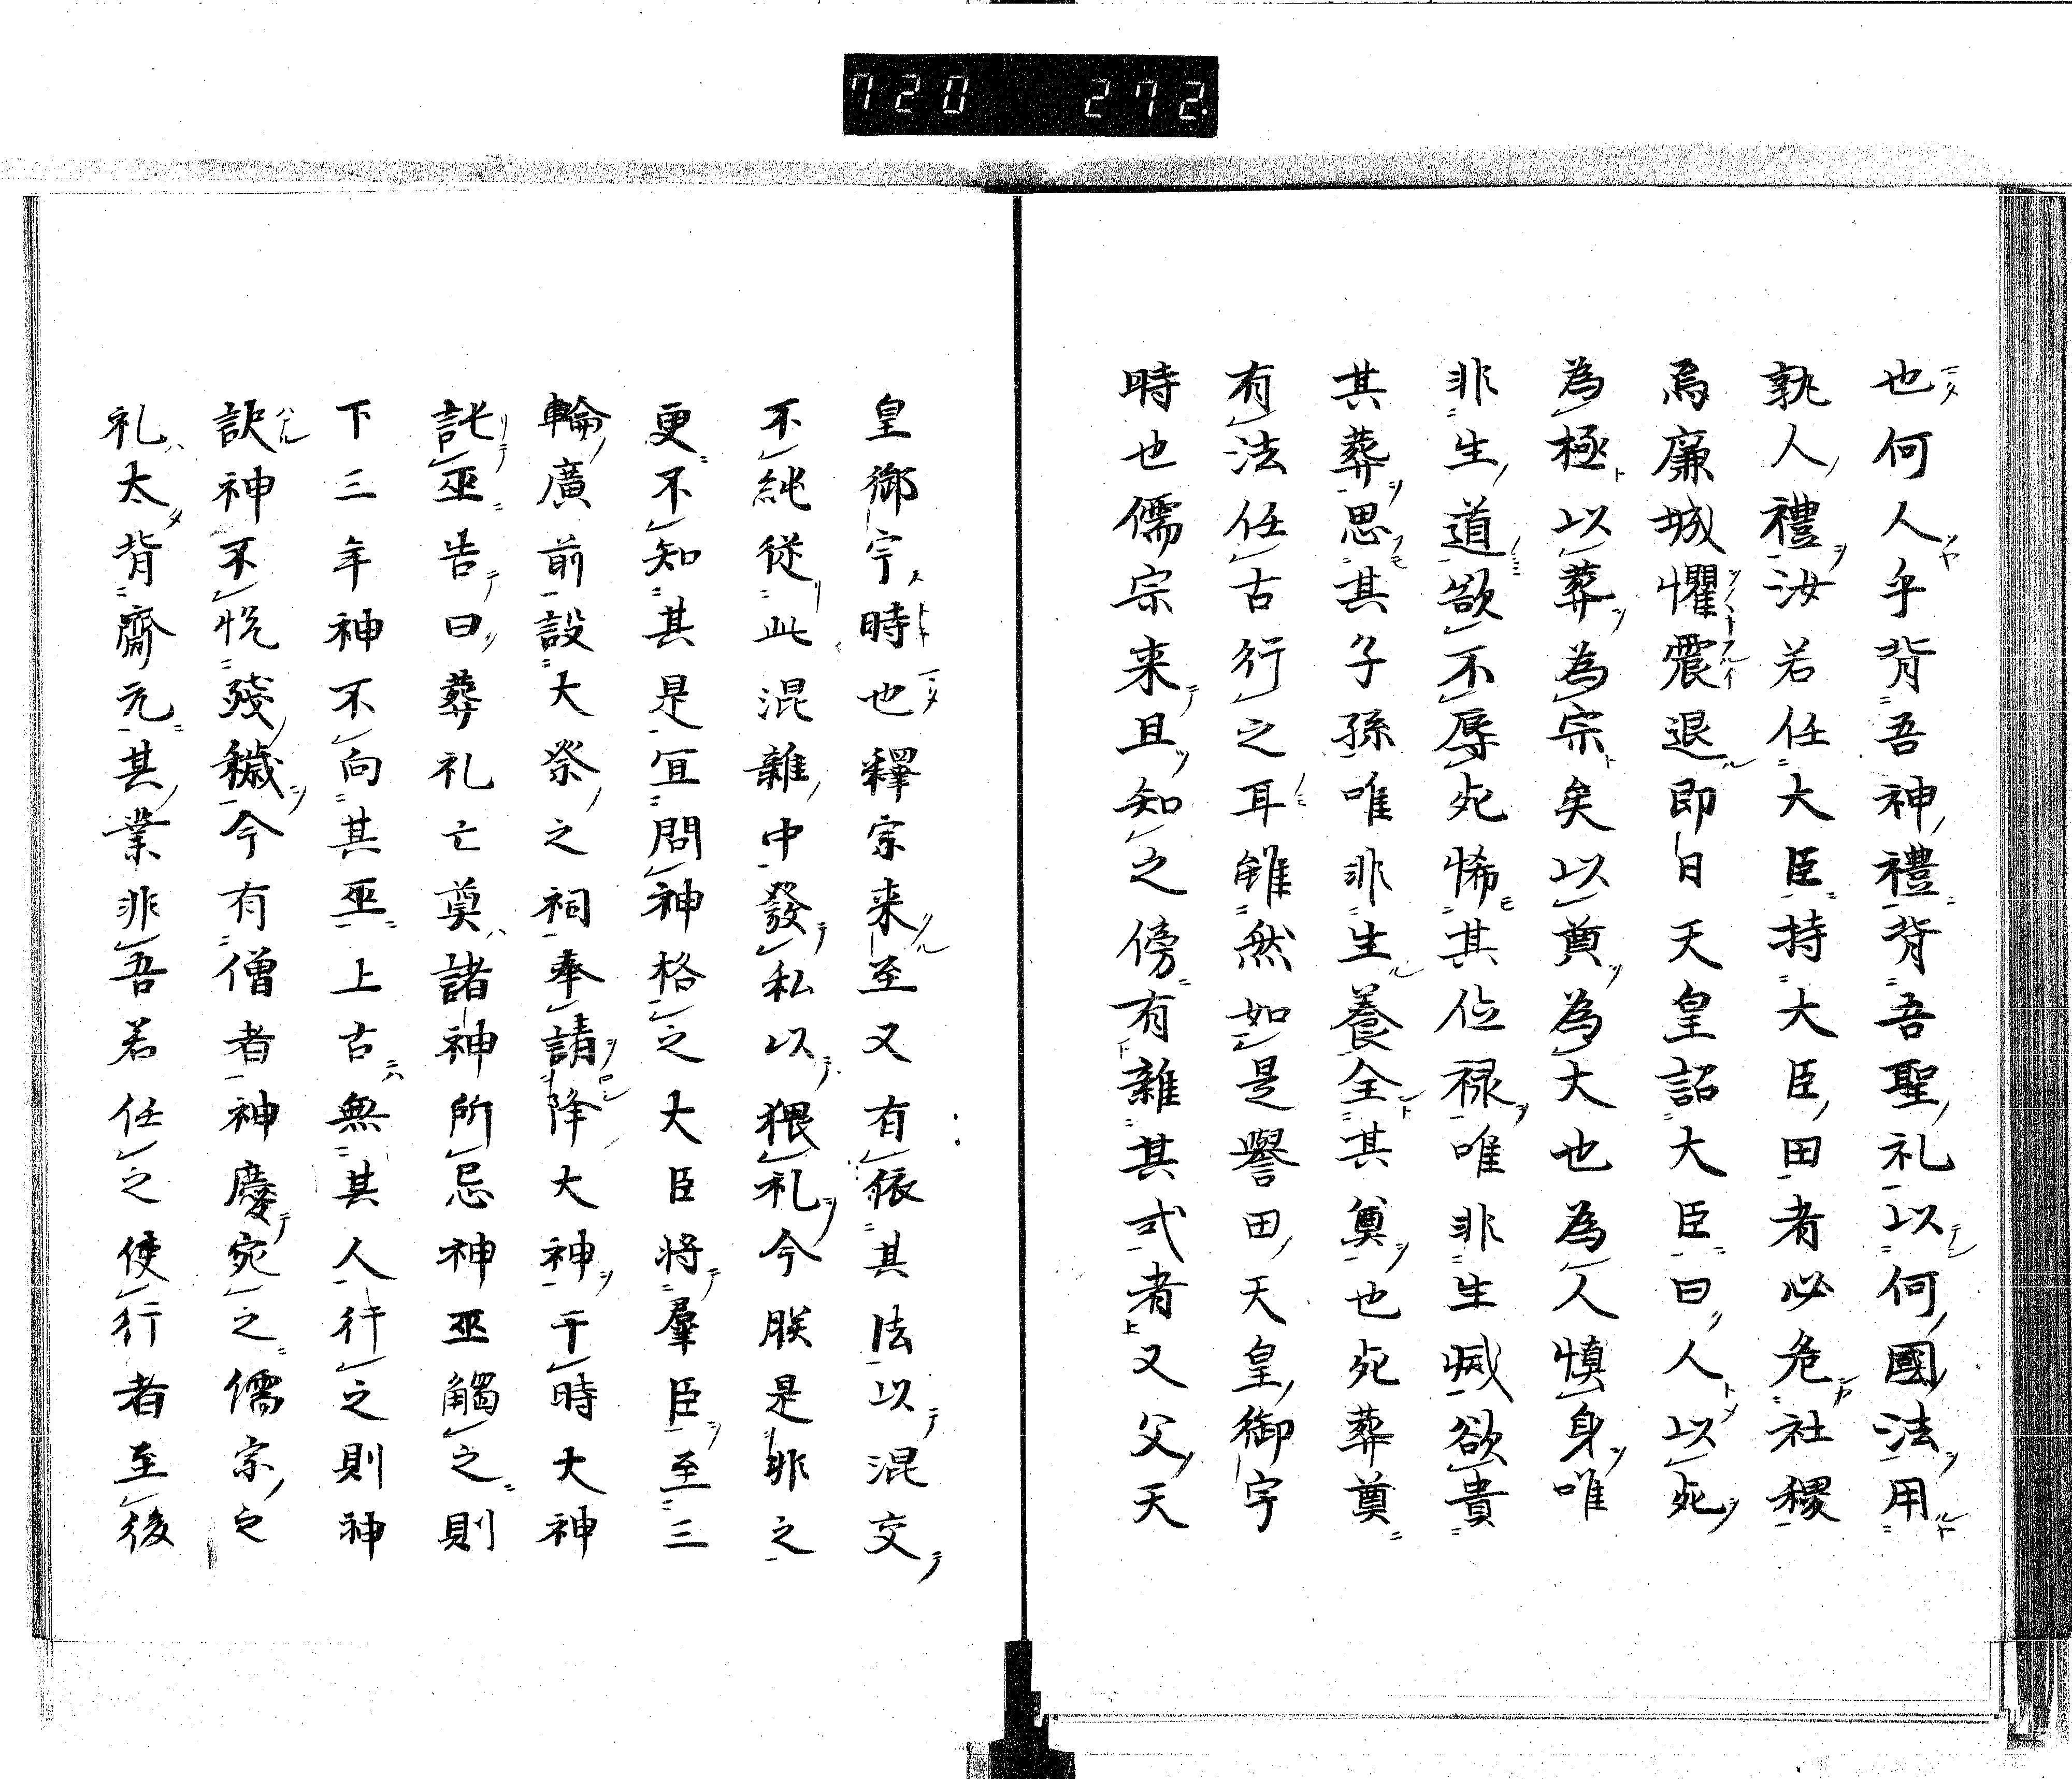 720 272.
也何人乎背吾神禮背吾聖礼以何國法用
孰人禮汝若任大臣持大臣田者必危社稷
焉廉城懼震退即日天皇詔大臣曰人以死
為極以葬為宗矣以奠為大也為人慎身唯
非生道欲不辱死怖其位禄唯非生慽欲貴
其葬思其子孫唯非生養全其奠也死葬奠
有法任古行之耳雖然如是譽田天皇御宇
時也儒宗来且知之傍有雜其式者又父天
皇御宇時也釋宗来至又有依其法以混交
不純從此混雜中發私以猥礼今朕是非之
更不知其是宜問神格之大臣将羣臣至三
輪廣前設大祭之祠奉請降大神于時大神
託巫告曰葬礼亡奠諸神所忌神巫觸之則
下三年神不向其巫上古無其人行之則神
訣神不悦殘穢今有僧者神慶宛之儒宗之
礼太背齋元其業非吾若任之使行者至後